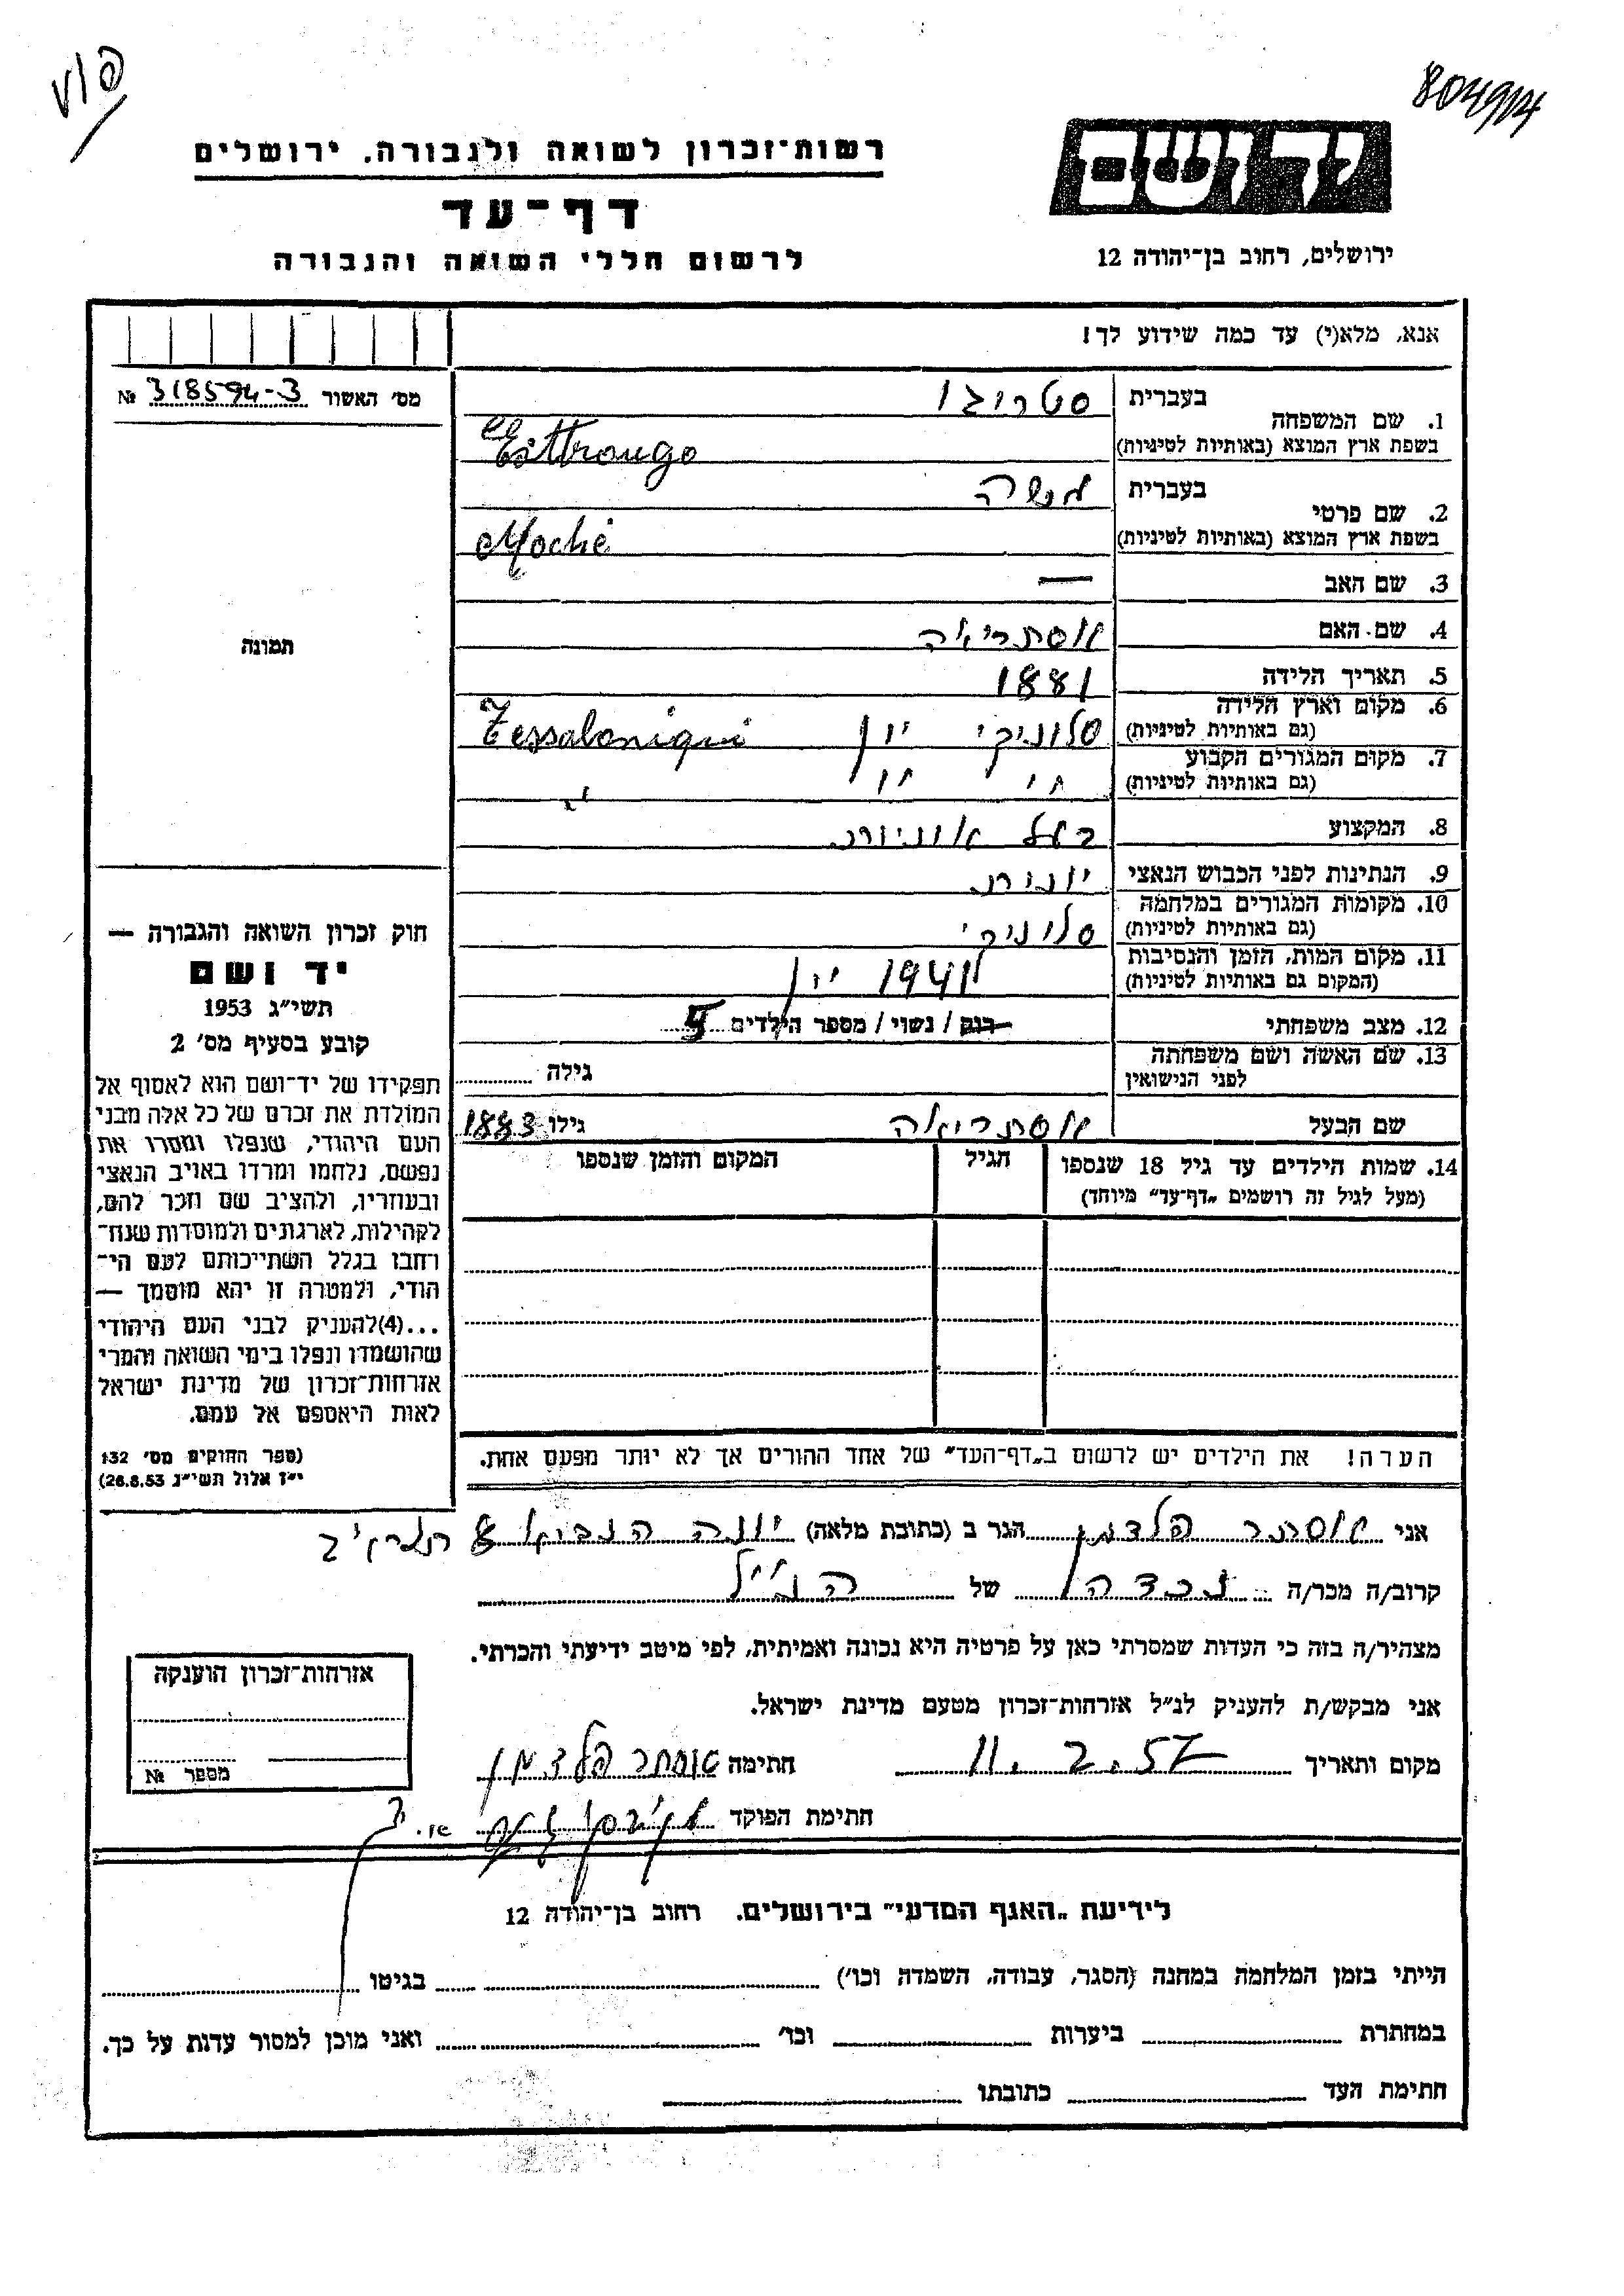 804914
רשות־זכרון לשואה ולגבורה. ירושלים
יד ושם
דף־עד
לרשום חללי השואה והגבורה
ירושלים, רחוב בן־יהודה 12
אנא, מלא(י) עד כמה שידוע לך!
מס׳ האשור 318594-3 №
1. שם המשפחה
בעברית סטרוגו
בשפת ארץ המוצא (באותיות לטיניות) Esttrougo
2. שם פרטי
בעברית משה
בשפת ארץ המוצא (באותיות לטיניות) Moché
3. שם האב —
4. שם האם אסתריאה
5. תאריך הלידה 1881
6. מקום וארץ הלידה
(גם באותיות לטיניות) סלוניקי יון Tessaloniqui
7. מקום המגורים הקבוע
(גם באותיות לטיניות) " " "
8. המקצוע בעל אוניות
9. הנתינות לפני הכבוש הנאצי יוונית
10. מקומות המגורים במלחמה
(גם באותיות לטיניות) סלוניקי
11. מקום המות, הזמן והנסיבות
(המקום גם באותיות לטיניות) 1941 יון
12. מצב משפחתי רוק / נשוי / מספר הילדים 5
13. שם האשה ושם משפחתה
לפני הנישואין גילה
שם הבעל אסתריאה גילו 1883
14. שמות הילדים עד גיל 18 שנספו
(מעל לגיל זה רושמים „דף־עד״ מיוחד)
הגיל
המקום והזמן שנספו
תמונה
חוק זכרון השואה והגבורה —
יד ושם
תשי״ג 1953
קובע בסעיף מס׳ 2
תפקידו של יד־ושם הוא לאסוף אל
המולדת את זכרם של כל אלה מבני
העם היהודי, שנפלו ומסרו את
נפשם, נלחמו ומרדו באויב הנאצי
ובעוזריו, ולהציב שם וזכר להם,
לקהילות, לארגונים ולמוסדות שנח־
רחבו בגלל השתייכותם לעם הי־
הודי, ולמטרה זו יהא מוסמך —
...(4)להעניק לבני העם היהודי
שהושמדו ונפלו בימי השואה והמרי
אזרחות־זכרון של מדינת ישראל
לאות היאספם אל עמם.
(ספר החוקים מס׳ 132
י״ז אלול תשי״ג 26.8.53)
הערה! את הילדים יש לרשום ב„דף־העד״ של אחד ההורים אך לא יותר מפעם אחת.
אני אסתר הלדמן הגר ב (כתובת מלאה) יונה הנביא 8 תל־אביב
קרוב/ה מכר/ה נכדה של הנ״ל
מצהיר/ה בזה כי העדות שמסרתי כאן על פרטיה היא נכונה ואמיתית, לפי מיטב ידיעתי והכרתי.
אני מבקש/ת להעניק לנ״ל אזרחות־זכרון מטעם מדינת ישראל.
מקום ותאריך 11.2.57 חתימה אסתר הלדמן
חתימת הפוקד
אזרחות־זכרון הוענקה
מספר №
לידיעת „האגף המדעי״ בירושלים. רחוב בן־יהודה 12
הייתי בזמן המלחמה במחנה (הסגר, עבודה, השמדה וכו׳) בגיטו
במחתרת ביערות וכו׳ ואני מוכן למסור עדות על כך.
חתימת העד כתובתו